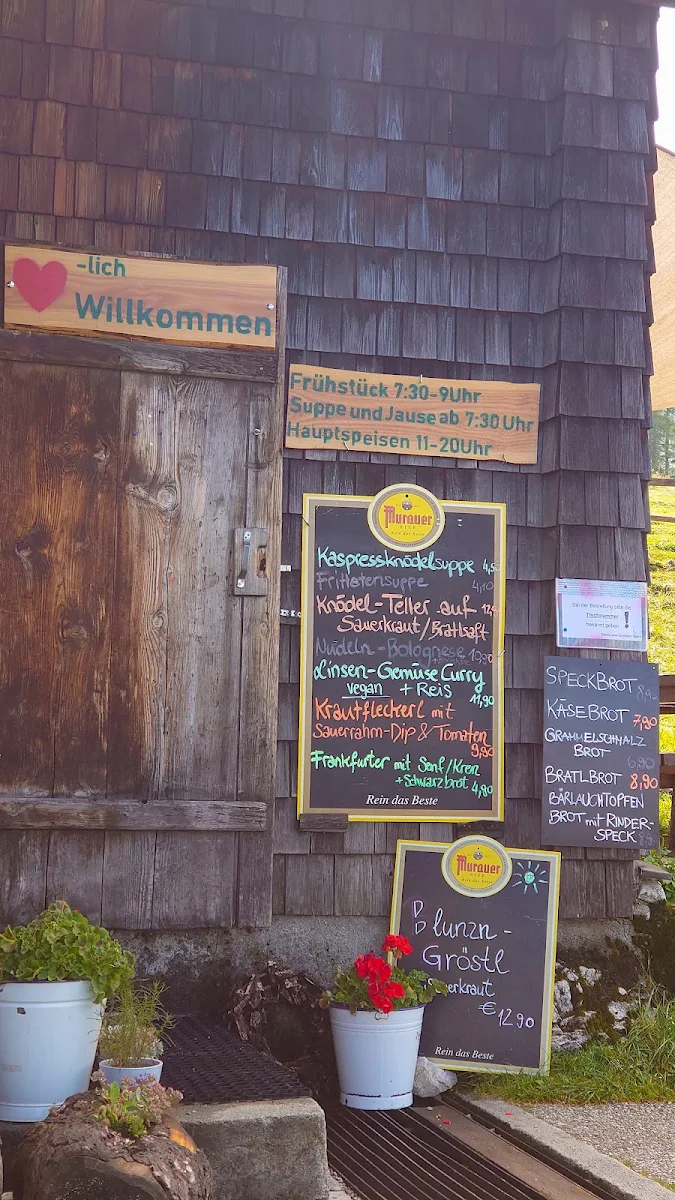 -lich
Willkommen
Frühstück 7:30-9Uhr
Suppe und Jause ab 7:30 Uhr
Hauptspeisen 11-20Uhr
Murauer
BIER
Rein das Beste
Kaspressknödelsuppe 4,50
Frittatensuppe 4,10
Knödel-Teller auf
Sauerkraut/Bratlsaft
Nudeln-Bolognese
Linsen-Gemüse Curry
vegan + Reis 11,90
Krautfleckerl mit
Sauerrahm-Dip & Tomaten
9,90
Frankfurter mit Senf/Kren
+Schwarzbrot 4,90
Rein das Beste
Bei der Bestellung bitte die
Tischnummer
bekannt geben!
SPECKBROT
KÄSEBROT 7,90
GRAMMELSCHMALZ
BROT 6,90
BRATLBROT 8,90
BÄRLAUCHTOPFEN
BROT mit RINDER-
SPECK
Murauer
BIER
Rein das Beste
Blunzn-
Gröstl
Sauerkraut
€ 12,90
Rein das Beste